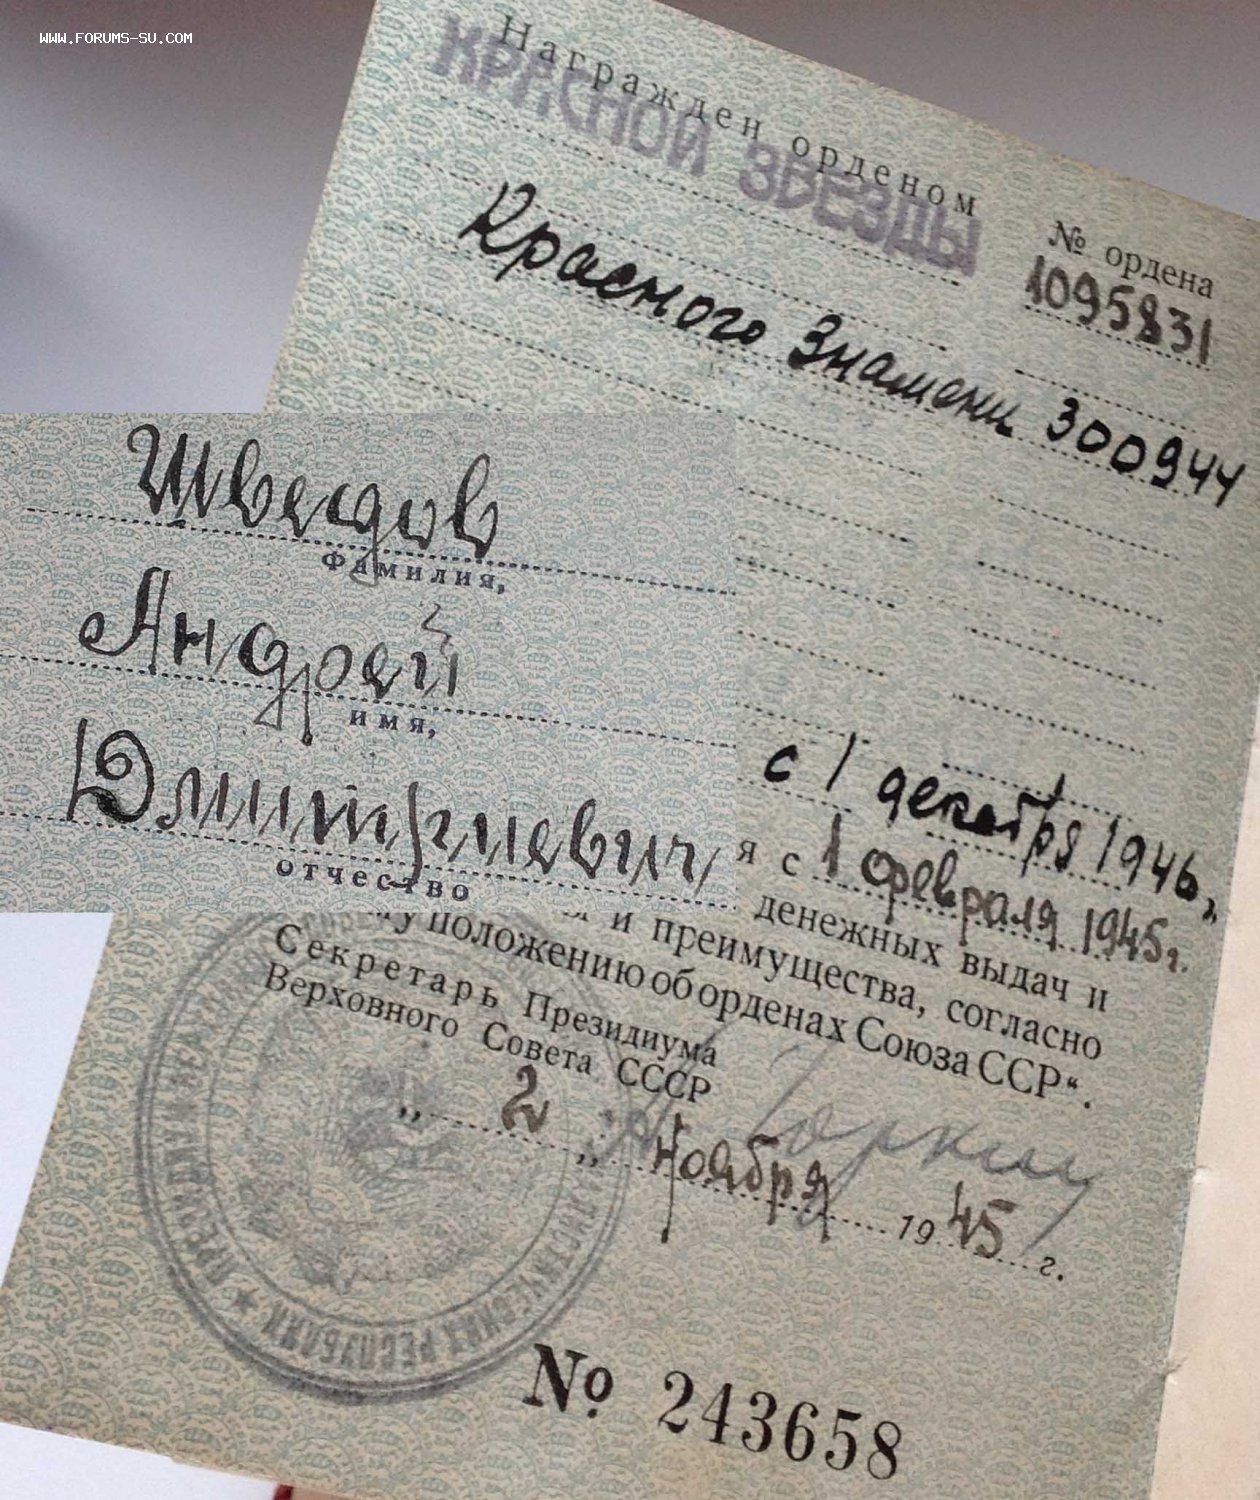 WWW.FORUMS-SU.COM
Награжден орденом
КРАСНОЙ ЗВЕЗДЫ
№ ордена
1095831
Красного Знамени 300944
Шведов
фамилия,
Андрей
имя,
Дмитриевич
отчество
с 1 декабря 1946г.
я с 1 февраля 1945г.
денежных выдач и
и преимущества, согласно
му положению об орденах Союза ССР“.
Секретарь Президиума
Верховного Совета СССР
Горкин
„ 2 „ ноября 1945 г.
ПРЕЗИДИУМ ВЕРХОВНОГО ★ РЕСПУБЛИК
№ 243658